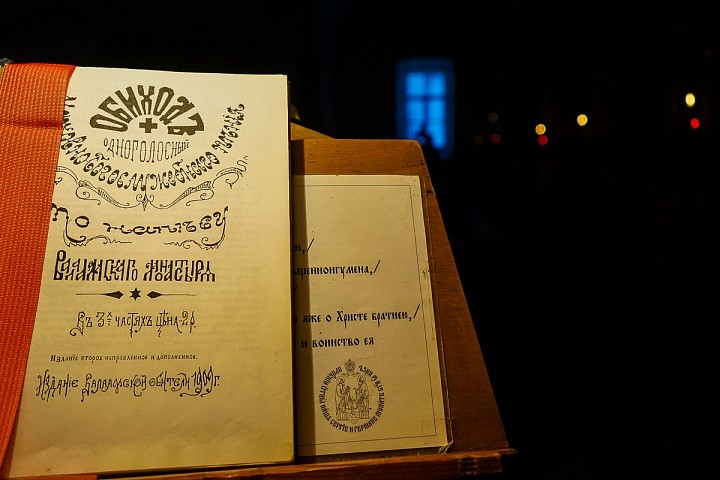 ОБИХОДЪ
ОДНОГОЛОСНЫЙ
БОГОСЛУЖЕБНАГО ПѢНІЯ
ПО НАПѢВУ
ВАЛААМСКАГО МОНАСТЫРЯ
ВЪ 3Х ЧАСТЯХЪ ЦѢНА-2Р.
ИЗДАНІЕ ВТОРОЕ ИСПРАВЛЕННОЕ И ДОПОЛНЕННОЕ.
ИЗДАНІЕ ВАЛААМСКОЙ ОБИТЕЛИ 1909Г.
н,/
щенноигумена,/
яже о Христе братиею,/
и воинство ея